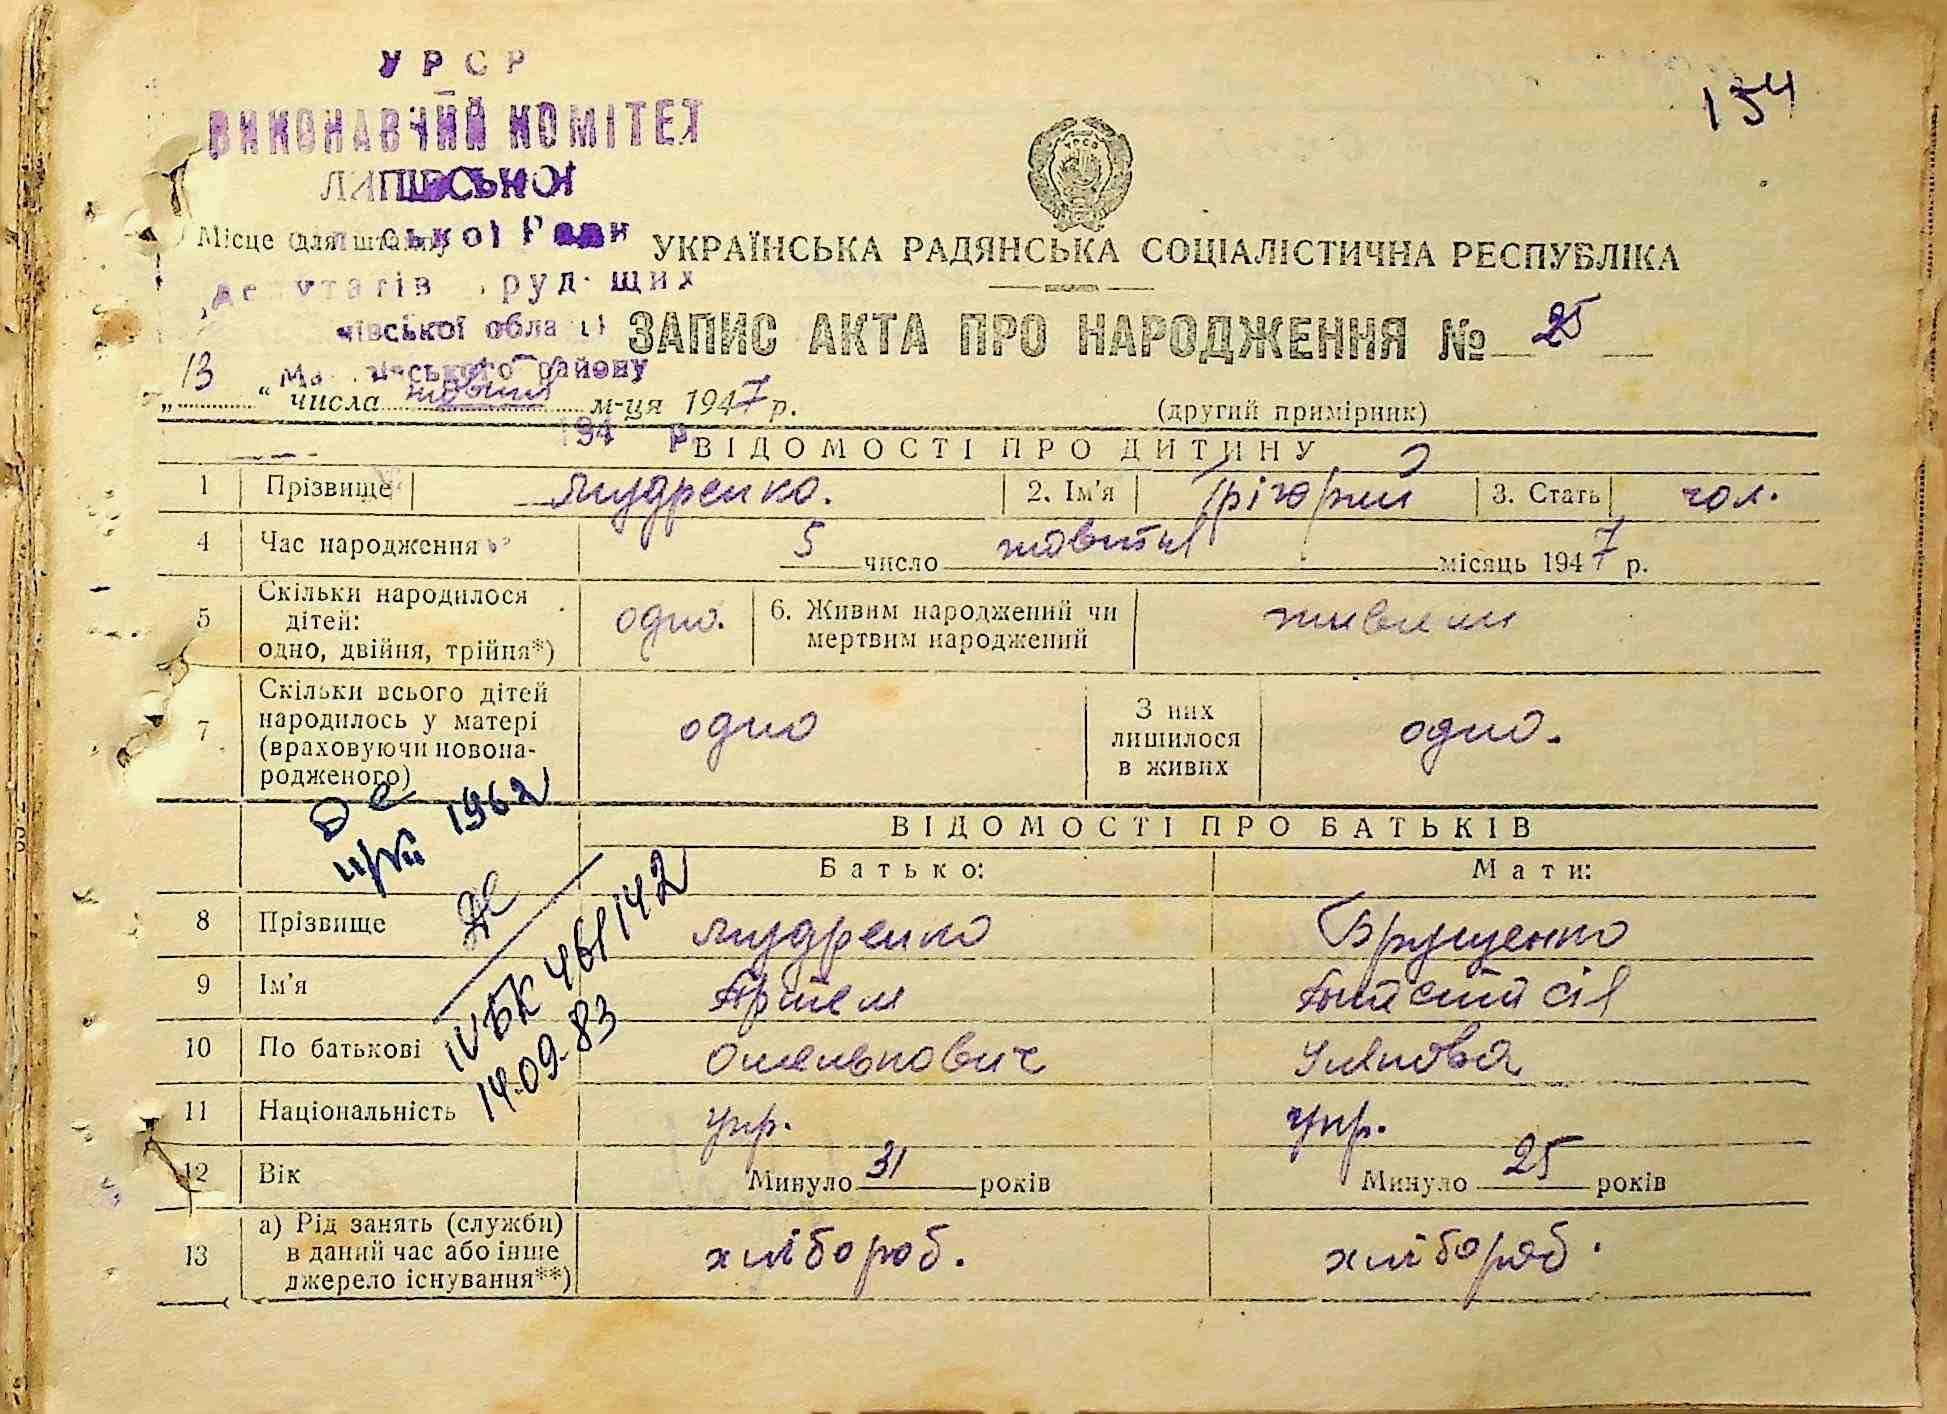 УРСР
ВИКОНАВЧИЙ КОМІТЕТ
ЛИПІВСЬКОЇ
Місце для штампу
сільської Ради
депутатів трудящих
ївської області
Ма івського району
194 р
154
УКРАЇНСЬКА РАДЯНСЬКА СОЦІАЛІСТИЧНА РЕСПУБЛІКА
ЗАПИС АКТА ПРО НАРОДЖЕННЯ № 25
„13“ числа жовтня м-ця 1947 р.
(другий примірник)
ВІДОМОСТІ ПРО ДИТИНУ
1 Прізвище Мудренко. 2. Ім'я Грігорий 3. Стать чол.
4 Час народження 5 число жовтня місяць 1947 р.
5 Скільки народилося дітей: одно, двійня, трійня*) одно. 6. Живим народжений чи мертвим народжений живим
7 Скільки всього дітей народилось у матері (враховуючи новонародженого) одно З них лишилося в живих одно.
1962
ВІДОМОСТІ ПРО БАТЬКІВ
Батько: Мати:
8 Прізвище Мудренко Грущенко
9 Ім'я Артем Анастасія
10 По батькові Омелькович Улянова
11 Національність укр. укр.
IV БК 461142
14.09.83
12 Вік Минуло 31 років Минуло 25 років
13 а) Рід занять (служби) в даний час або інше джерело існування**) хлібороб. хлібороб.